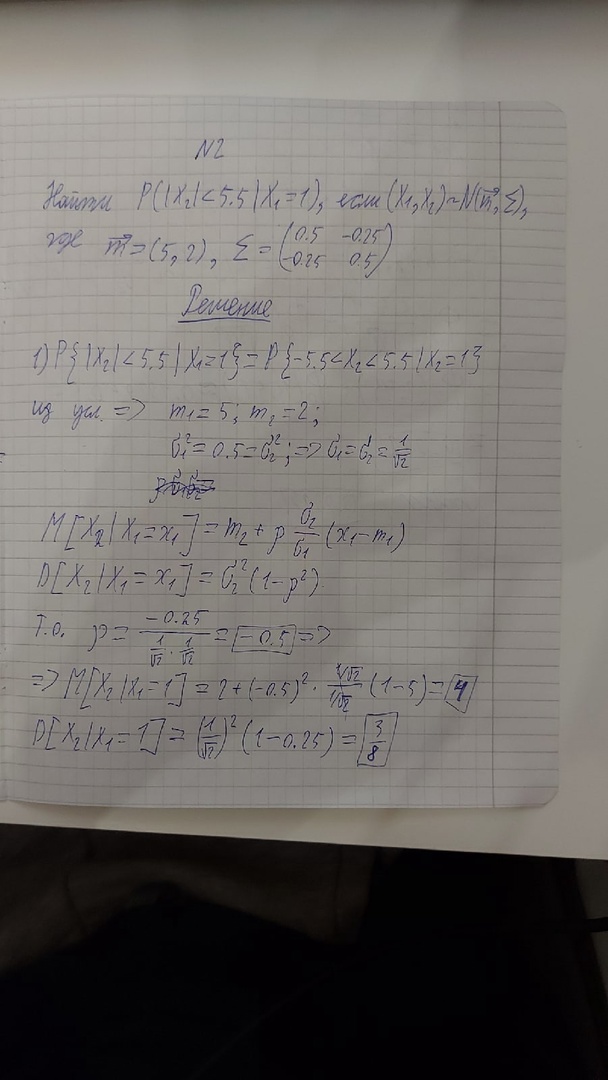 N2
Найти P(|X₂|<5.5|X₁=1), если (X₁,X₂)~N(m⃗,Σ),
где m⃗=(5,2), Σ=(0.5 -0.25
-0.25 0.5)
Решение
1) P{|X₂|<5.5|X₁=1}=P{-5.5<X₂<5.5|X₂=1}
из усл. => m₁=5; m₂=2;
σ₁²=0.5=σ₂²; => σ₁=σ₂=1/√2
M[X₂|X₁=x₁]=m₂+ρ σ₂/σ₁ (x₁-m₁)
D[X₂|X₁=x₁]=σ₂²(1-ρ²)
Т.о. ρ= -0.25/(1/√2 · 1/√2) = -0.5 =>
=> M[X₂|X₁=1]=2+(-0.5)² · (1/√2)/(1/√2) (1-5)=4
D[X₂|X₁=1]=(1/√2)²(1-0.25)=3/8